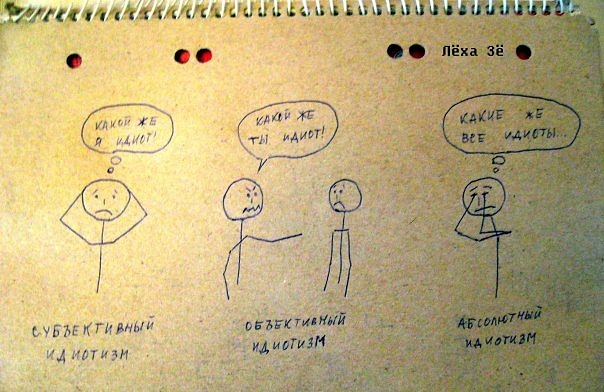 Лёха Зё
КАКОЙ ЖЕ
Я ИДИОТ!
КАКОЙ ЖЕ
ТЫ ИДИОТ!
КАКИЕ ЖЕ
ВСЕ ИДИОТЫ...
СУБЪЕКТИВНЫЙ
ИДИОТИЗМ
ОБЪЕКТИВНЫЙ
ИДИОТИЗМ
АБСОЛЮТНЫЙ
ИДИОТИЗМ